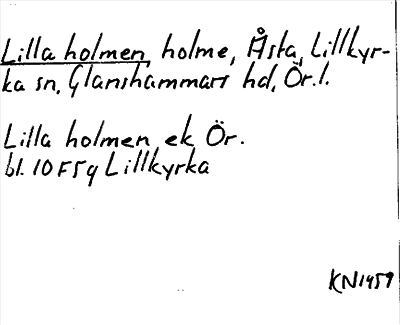 Lilla holmen, holme, Åsta, Lillkyr-
ka sn, Glanshammars hd, Ör. l.
Lilla holmen ek Ör.
bl. 10 F5g Lillkyrka
KN1959